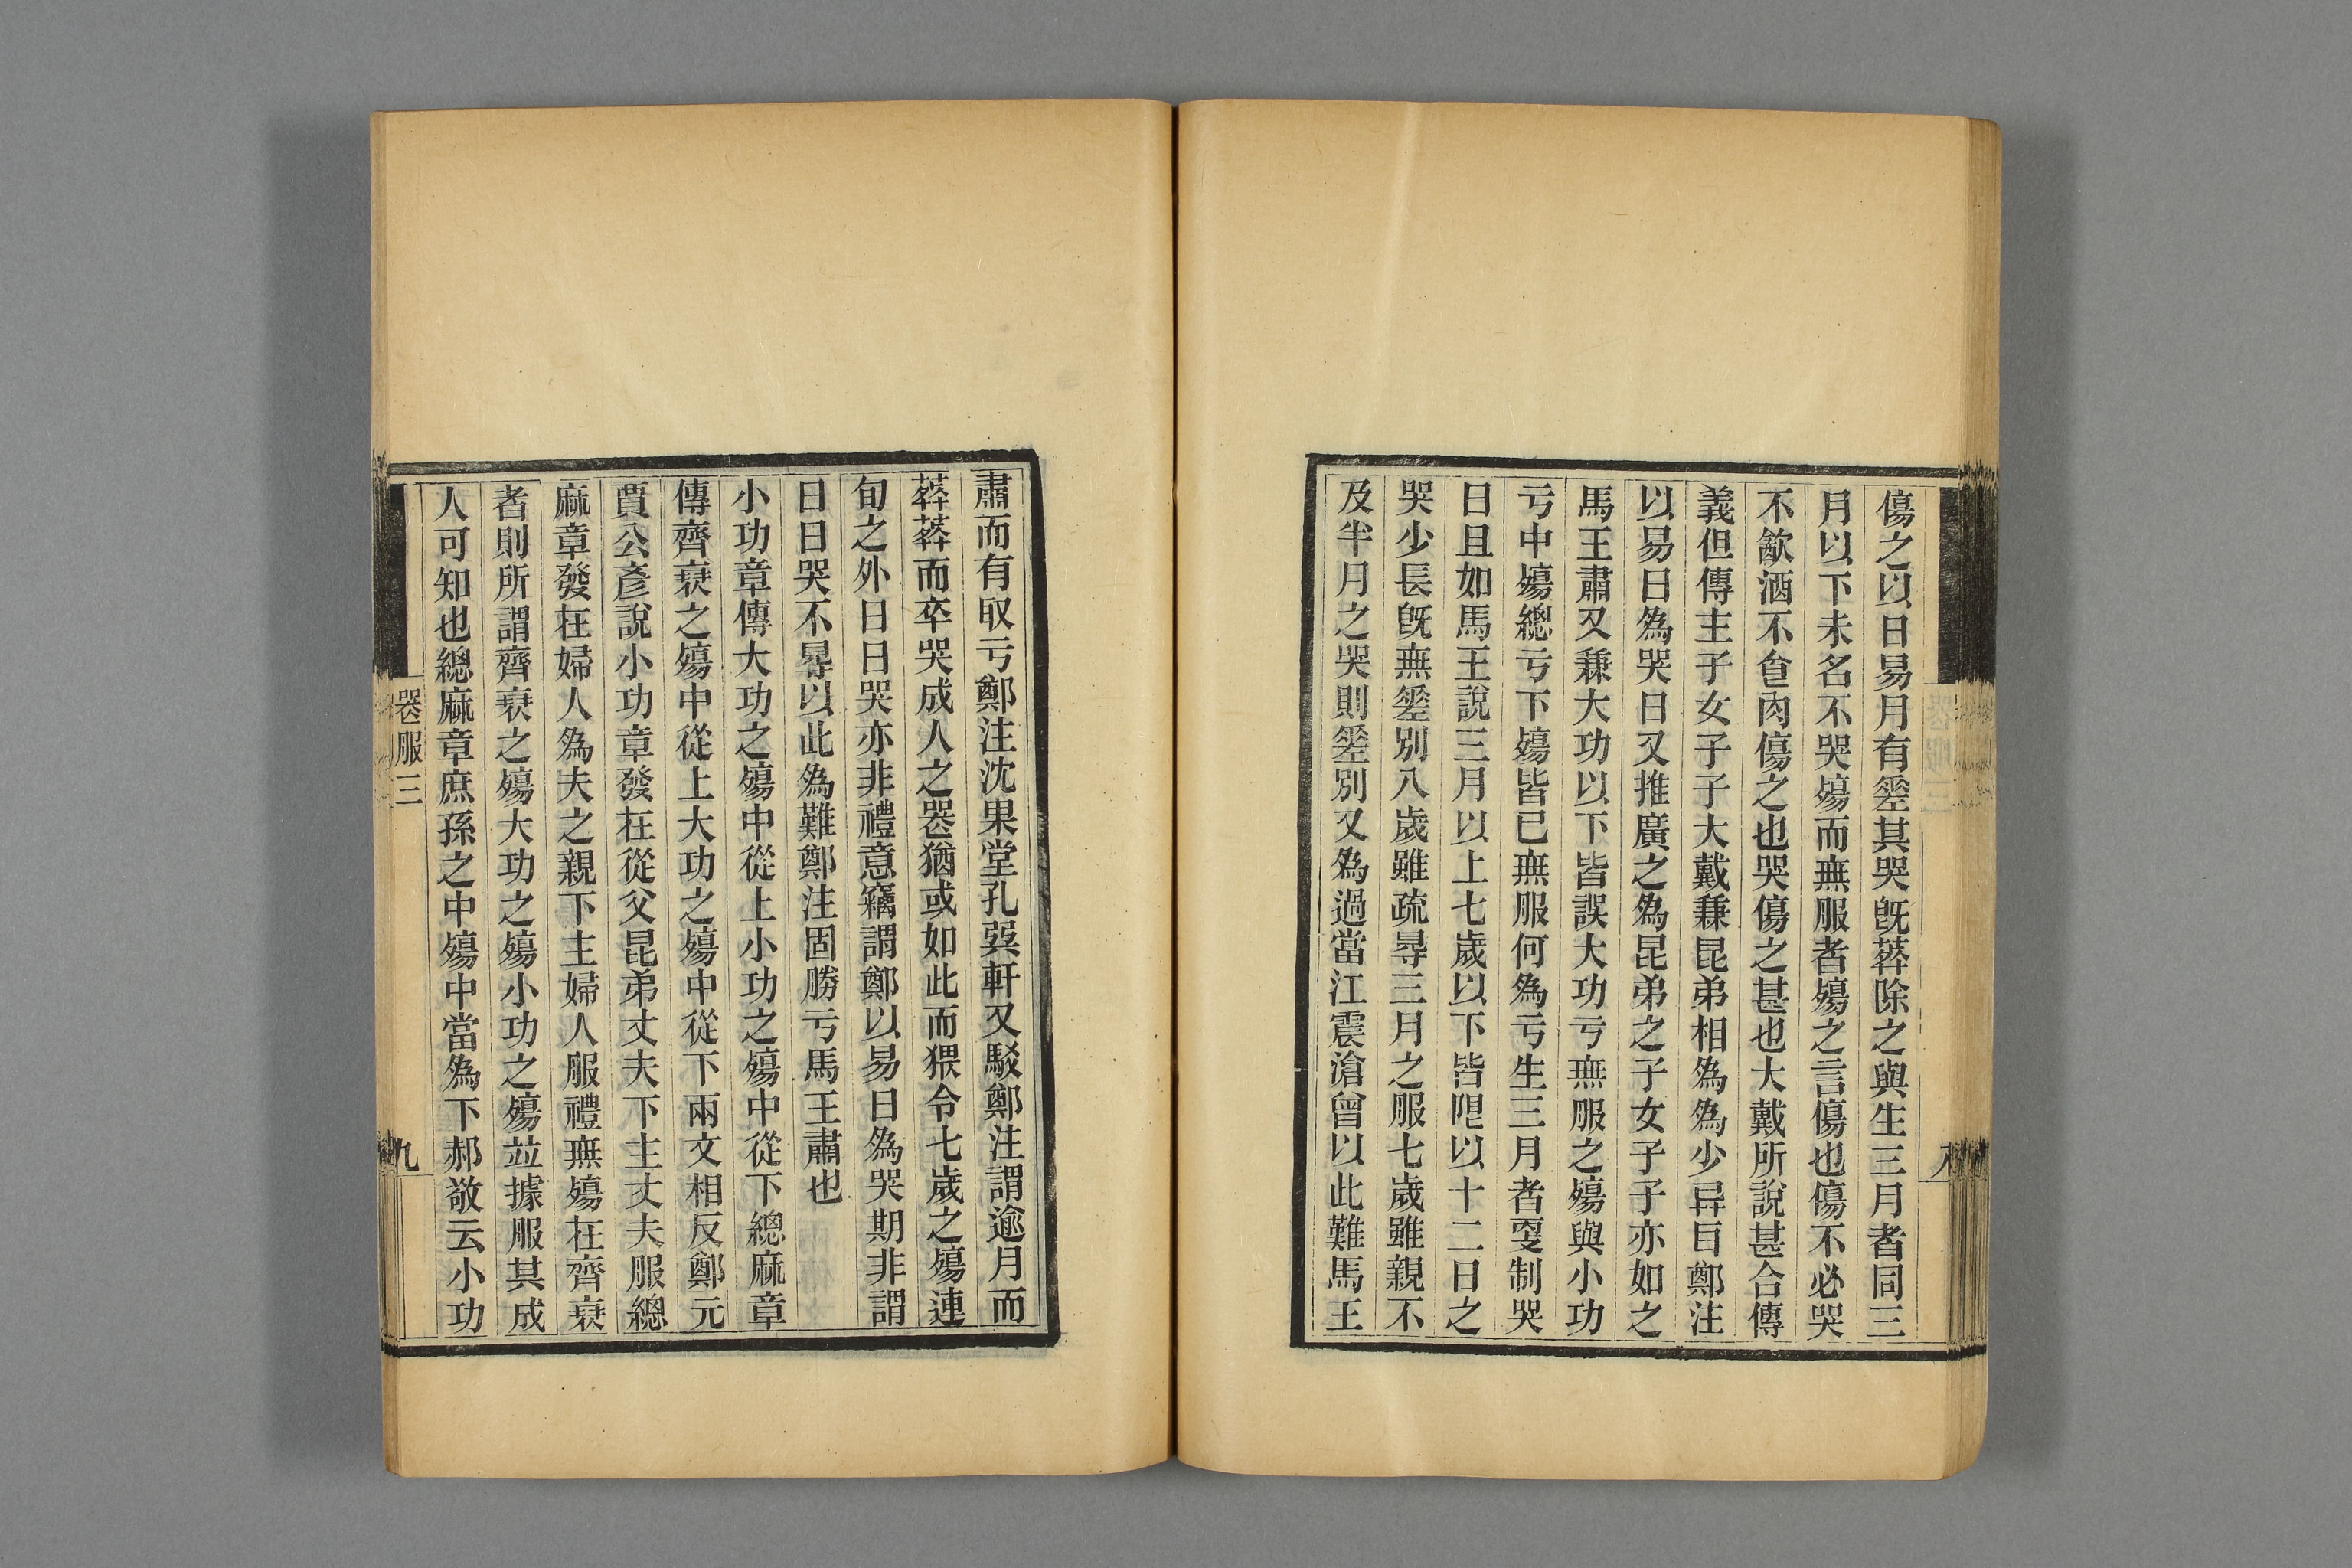 傷之以日易月有𨤲其哭旣葬除之與生三月者同三
月以下未名不哭殤而無服者殤之言傷也傷不必哭
不飮酒不㑹肉傷之也哭傷之甚也大戴所說甚合傳
義但傳主子女子子大戴兼昆弟相為為少异目鄭注
以易日為哭日又推廣之為昆弟之子女子子亦如之
馬王肅又兼大功以下皆誤大功亏無服之殤與小功
亏中殤緦亏下殤皆已無服何為亏生三月者㪅制哭
日且如馬王說三月以上七歲以下皆限以十二日之
哭少長旣無𨤲別八歲雖疏㝵三月之服七歲雖親不
及半月之哭則𨤲別又為過當江震滄曾以此難馬王
肅而有取亏鄭注沈果堂孔㢲軒又駁鄭注謂逾月而
葬葬而卒哭成人之喪猶或如此而猥令七歲之殤連
旬之外日日哭亦非禮意竊謂鄭以易日為哭期非謂
日日哭不㝵以此為難鄭注固勝亏馬王肅也
小功章傳大功之殤中從上小功之殤中從下緦麻章
傳齊衰之殤中從上大功之殤中從下兩文相反鄭元
賈公彥說小功章發在從父昆弟丈夫下主丈夫服緦
麻章發在婦人為夫之親下主婦人服禮無殤在齊衰
者則所謂齊衰之殤大功之殤小功之殤竝據服其成
人可知也緦麻章庶孫之中殤中當為下郝敬云小功
喪服三
九